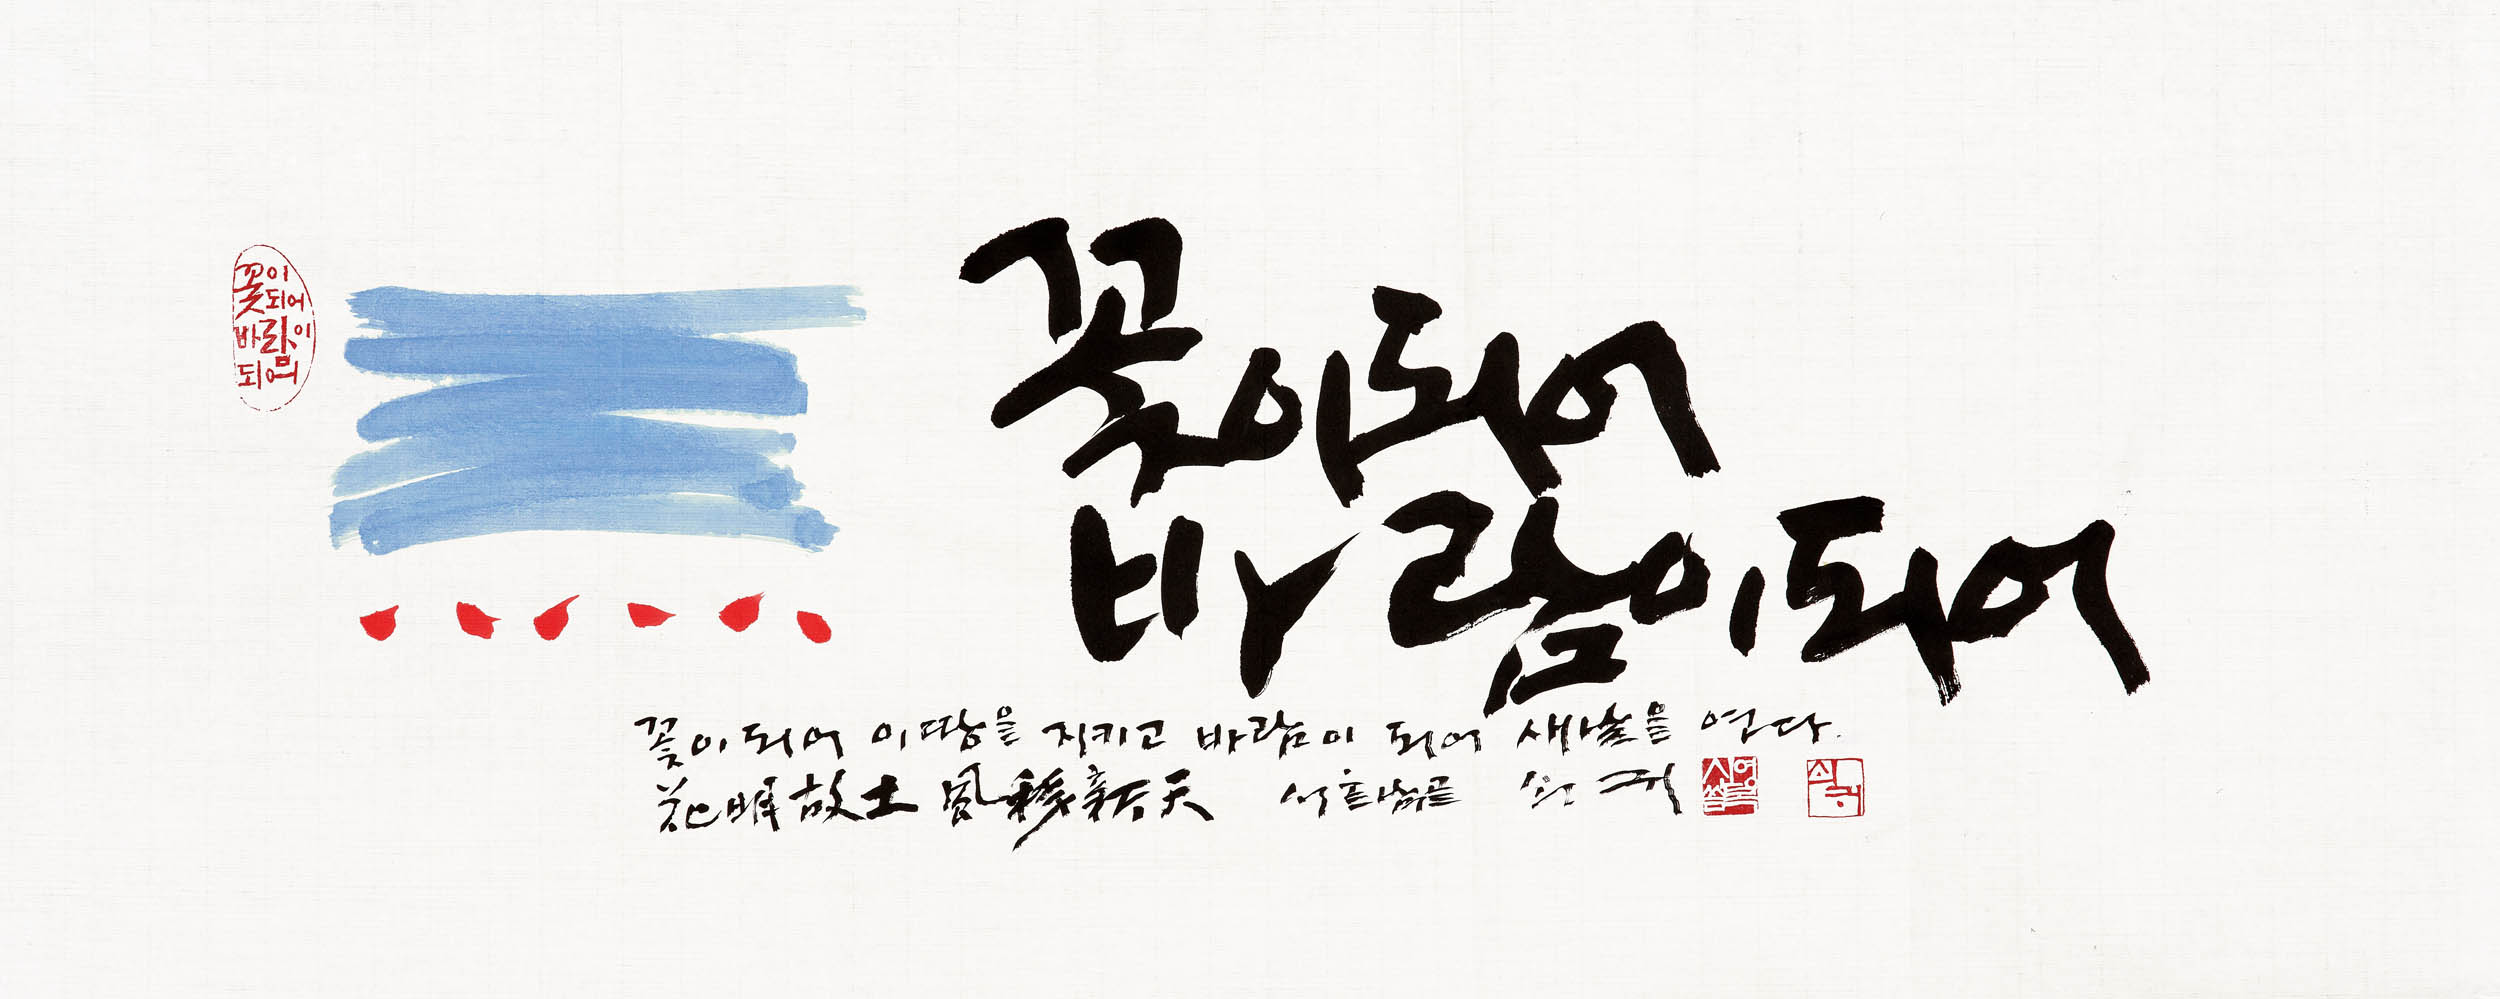 꽃이
되어
바람이
되어
꽃이되어
바람이되어
꽃이 되어 이 땅을 지키고 바람이 되어 새날을 연다.
花 故土 風 新天